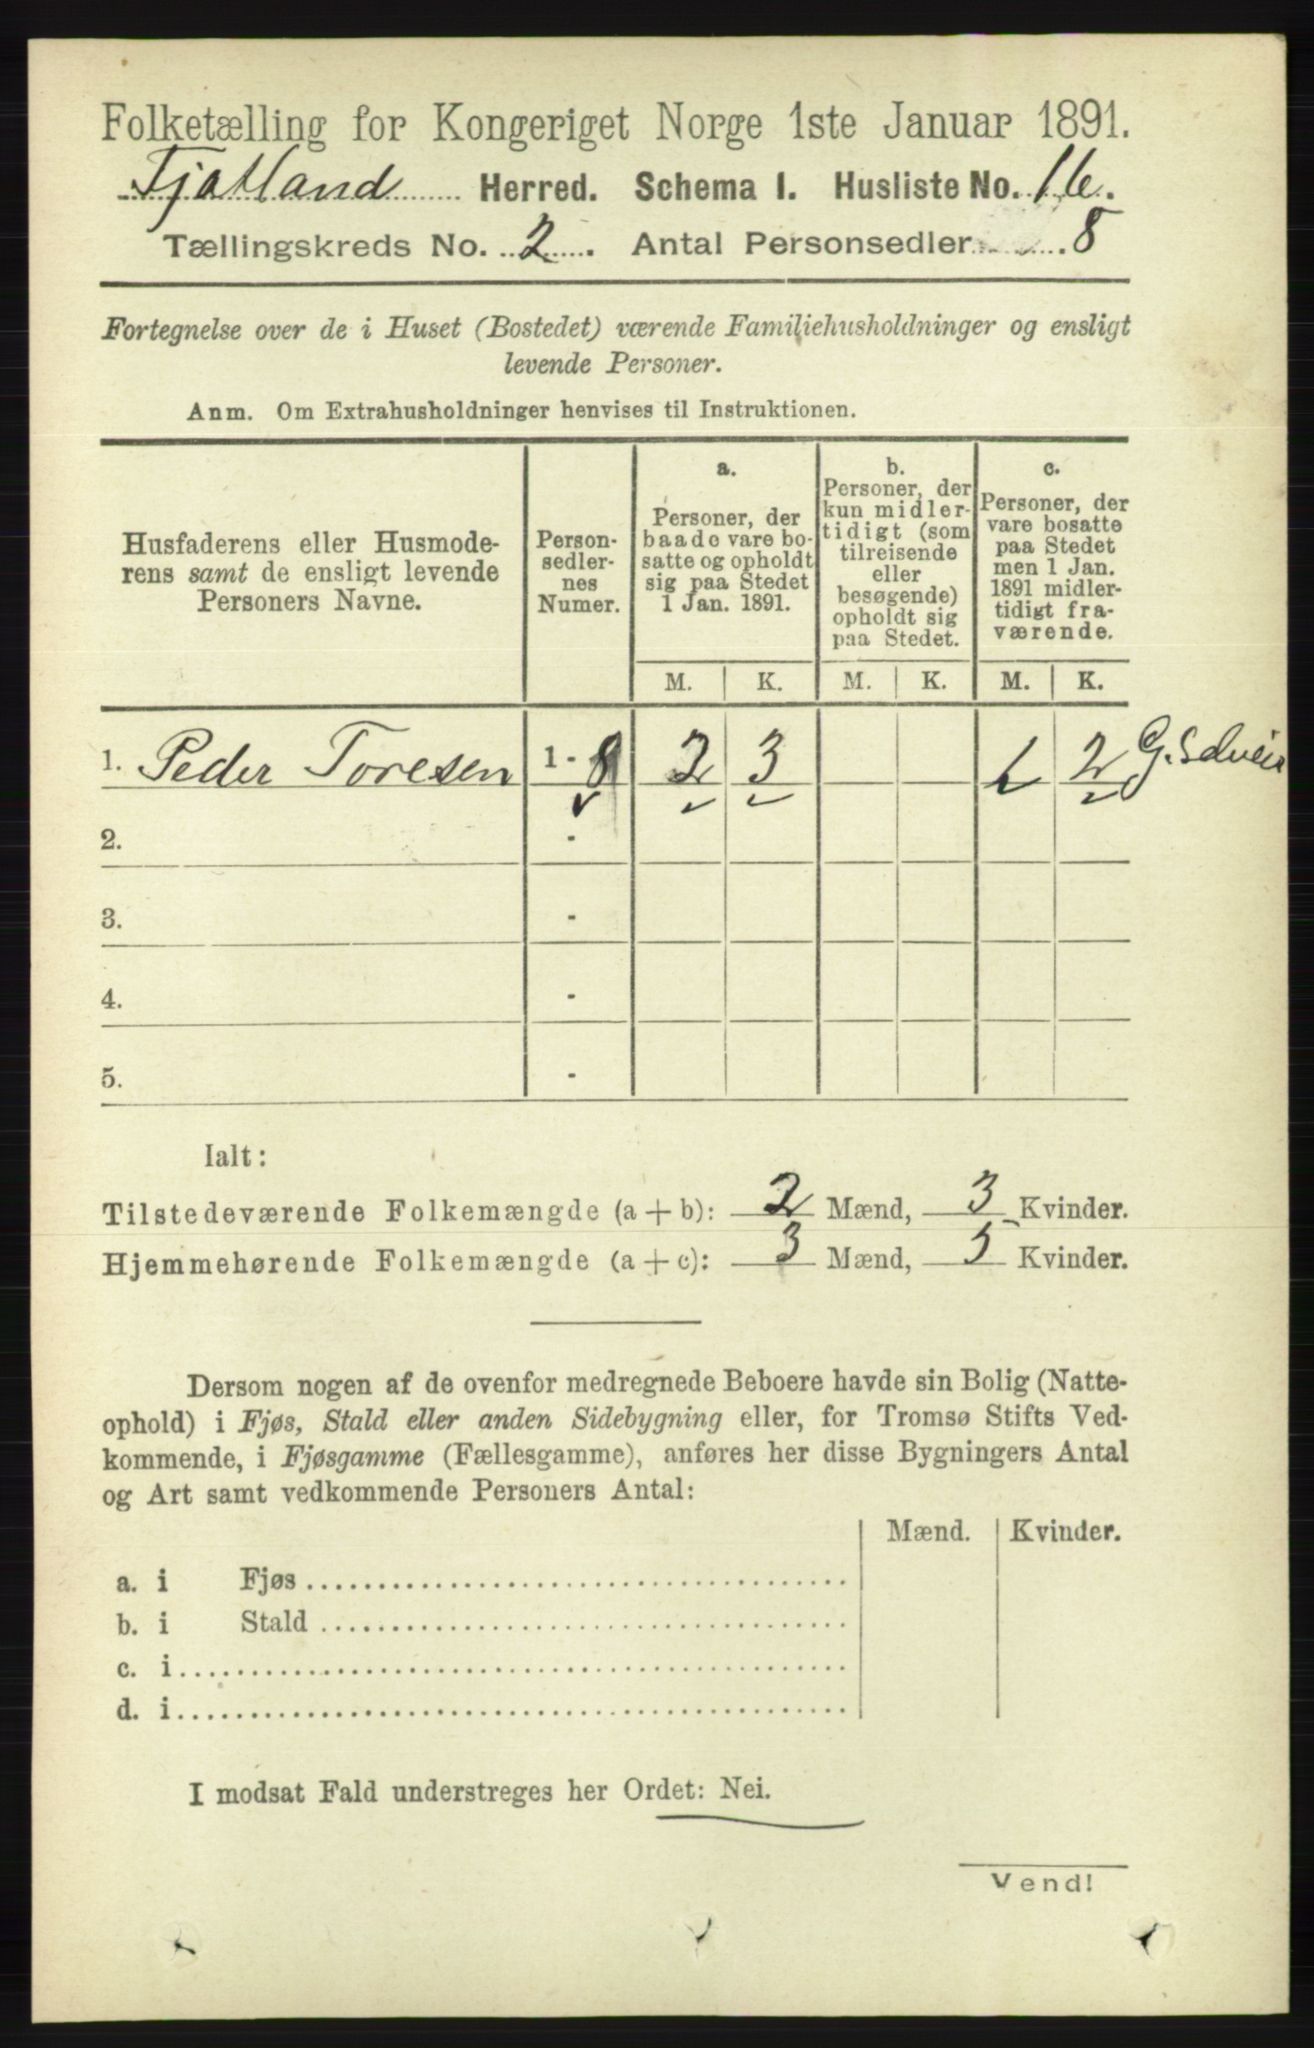 Folketælling for Kongeriget Norge 1ste Januar 1891.
Fjotland Herred. Schema I. Husliste No. 16.
Tællingskreds No. 2. Antal Personsedler 8
Fortegnelse over de i Huset (Bostedet) værende Familiehusholdninger og ensligt
levende Personer.
Anm. Om Extrahusholdninger henvises til Instruktionen.
Husfaderens eller Husmode-
rens samt de ensligt levende
Personers Navne.
Person-
sedler-
nes
Numer.
a.
Personer, der
baade vare bo-
satte og opholdt
sig paa Stedet
1 Jan. 1891.
b.
Personer, der
kun midler-
tidigt (som
tilreisende
eller
besøgende)
opholdt sig
paa Stedet.
c.
Personer, der
vare bosatte
paa Stedet
men 1 Jan.
1891 midler-
tidigt fra-
værende.
M. K. M. K. M. K.
1. Peder Toresen 1 - 8 2 3 1 2
2. -
3. -
4. -
5. -
Ialt:
Tilstedeværende Folkemængde (a + b): 2 Mænd, 3 Kvinder.
Hjemmehørende Folkemængde (a + c): 3 Mænd, 5 Kvinder.
Dersom nogen af de ovenfor medregnede Beboere havde sin Bolig (Natte-
ophold) i Fjøs, Stald eller anden Sidebygning eller, for Tromsø Stifts Ved-
kommende, i Fjøsgamme (Fællesgamme), anføres her disse Bygningers Antal
og Art samt vedkommende Personers Antal:
Mænd. Kvinder.
a. i Fjøs
b. i Stald
c. i
d. i
I modsat Fald understreges her Ordet: Nei.
Vend!